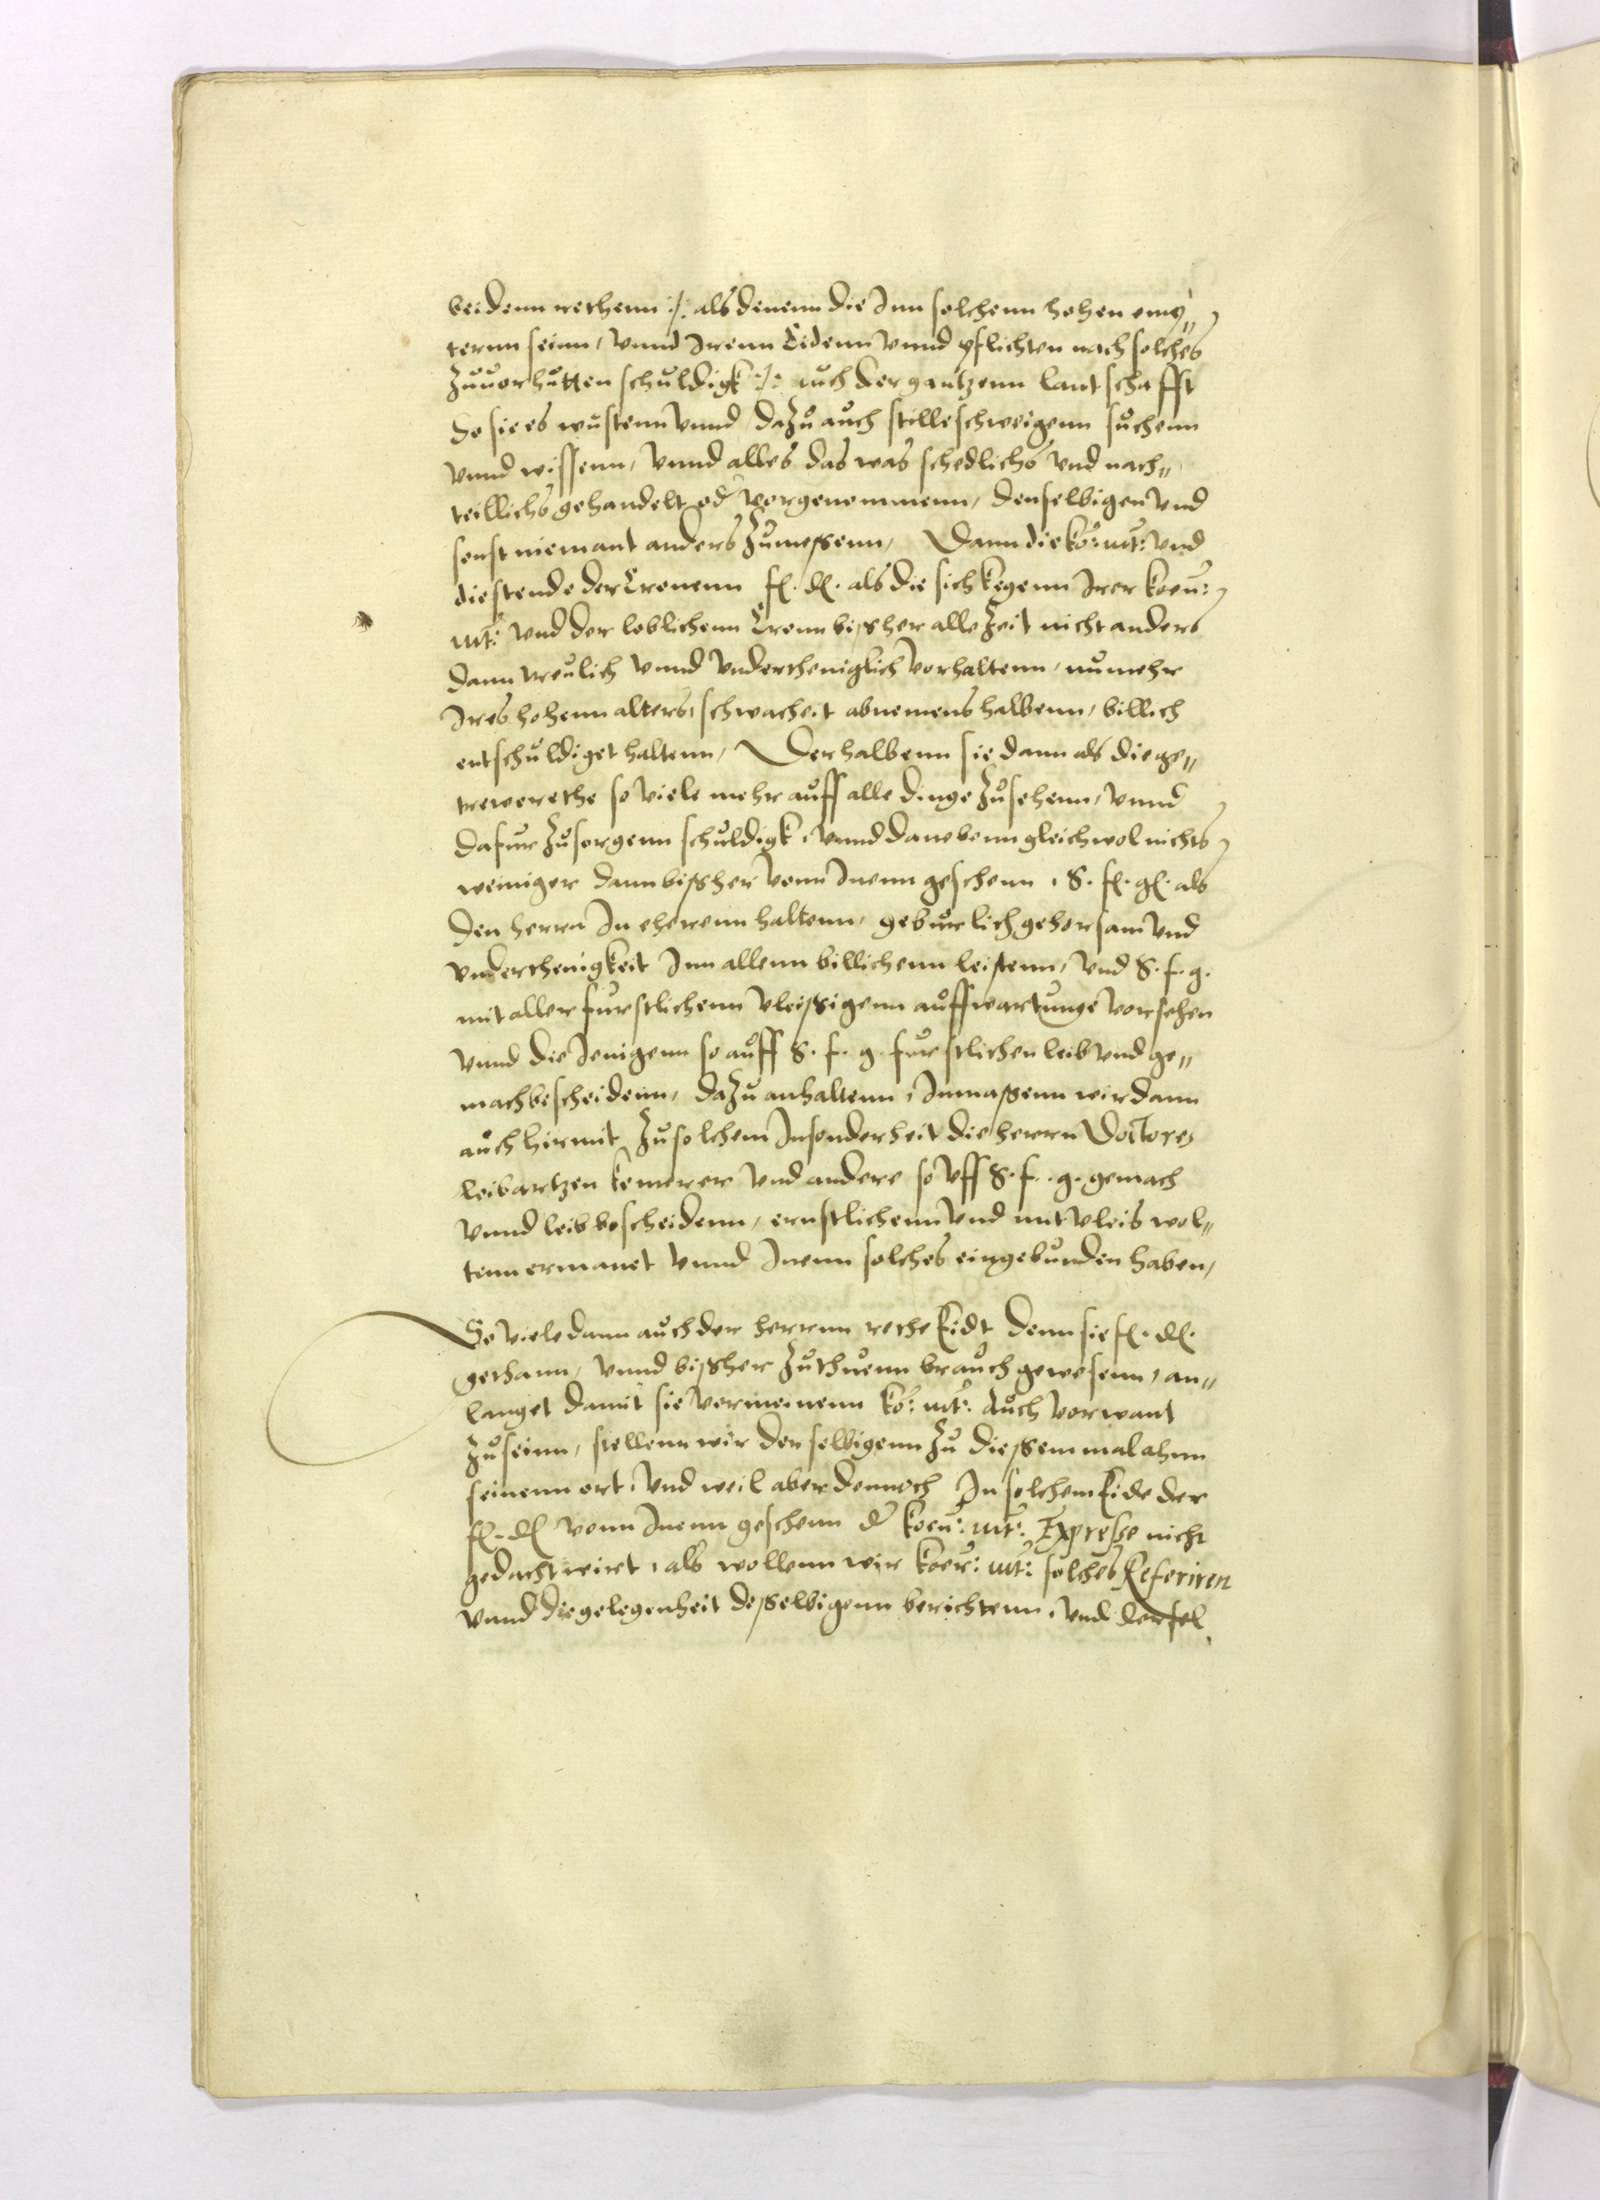 bei denn rethenn :/: als denenn die Inn solchenn hohen emp¬
ternn seinn, vnnd Irenn Eidenn vnnd pflichten nach solches
zuuorhutten schuldigk :/: auch der gantzenn lantschafft
do sie es wustenn vnnd dazu auch stilleschweigenn suchenn
vnnd wissenn, vnnd alles das was schedlichs vnd nach¬
teillichs gehandelt od vorgenommenn, denselbigen vnd
sonst niemant anders zumessenn, Dann die ko: mt: vnd
die stende der Cronenn fl. dl. als die sich kegenn Irer koen:
mt: vnd der loblichenn Cronn bissher alle zeit nicht anders
dann treulich vnnd vndertheniglich vorhaltenn, nu mehr
Ires hohenn alters, schwacheit abnemens halbenn, billich
entschuldiget haltenn, Derhalbenn sie dann als die ge¬
trewe rethe so viele mehr auff alle dinge zusehenn, vnnd
dafur zusorgenn schuldigk, vnnd danebenn gleichwol nichts
weiniger dann bissher vonn Inenn geschenn, S. fl. gl. als
den herrn In eherenn haltenn, geburlich gehorsam vnd
vnderthenigkeit Inn allenn billichenn leistenn, vnd S. f. g.
mit aller furstlichenn vleissigenn auffwartunge vorsehen
vnnd die Jenigenn so auff S. f. g. furstlichen leib vnd ge¬
mach bescheidenn, dazu anhaltenn, Inmassenn wir dann
auch hirmit zu solchem Insonderheit die herrn Doctores
leibartzen kemerer vnd andere so vff S. f. g. gemach
vnnd leib bescheidenn, ernstlichenn vnd mit vleis wol¬
tenn ermanet vnnd Inenn solches eingebunden haben,
So viele dann auch der herrnn rethe Eidt denn sie fl. dl.
gethann, vnnd bissher zuthuenn brauch gewesenn, an¬
langet damit sie vermeinenn ko: mt: auch vorwant
zuseinn, stellenn wir denselbigenn zu diessem mal ahnn
seinenn ort, vnd weil aber dennoch In solchem Eide der
fl. dl. vonn Inenn geschenn d koen: mt: Expresse nicht
gedacht wirt, als wollenn wir koen: mt: solches Referiren
vnnd die gelegenheit desselbigenn berichtenn, vnd dersel